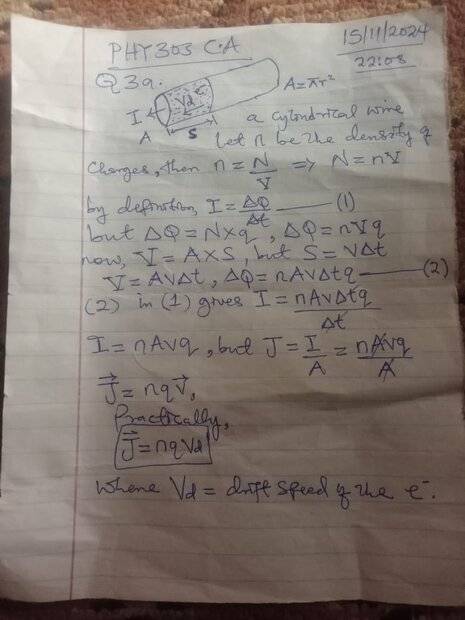 PHY 303 C.A
15/11/2024
22:08
Q 3a.
A=πr²
I
Vd
e⁻
A
S
a cylindrical wire
Let n be the density of
charges, then n = N/V ⇒ N = nV
by definition, I = ΔQ/Δt —— (1)
but ΔQ = N×q, ΔQ = nVq
now, V = A×S, but S = VΔt
V = AVΔt, ΔQ = nAVΔtq —— (2)
(2) in (1) gives I = nAVΔtq/Δt
I = nAVq, but J = I/A = nAVq/A
J⃗ = nqV⃗,
Practically,
J⃗ = nqVd
where Vd = drift speed of the e⁻.